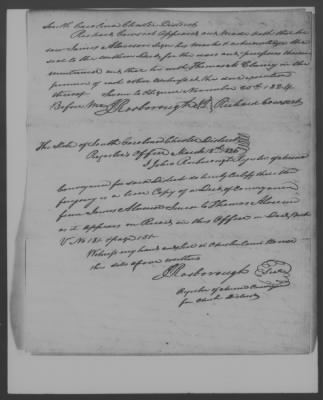 South Carolina Chester District
Richard Cowsert appeared and made oath that he
saw James
seal to the within deed for the uses and purposes therein
mentioned and that he with
presence of each other witnessed the due execution
thereof. Sworn to & signed November 20th 1824
Before me J Rosborough Richard Cowsert
The State of South Carolina Chester District
Register Office March
I John Rosborough Register of mesne
Conveyance for said District do hereby Certify that the
foregoing is a true Copy of a Deed of Conveyance
from James to Thomas
as it appears on Record in this Office in Deed Book
V. No page
Witness my hand and seal at Chester Court House
this date above written
J Rosborough Seal
Register of mesne Conveyance
for Chester District